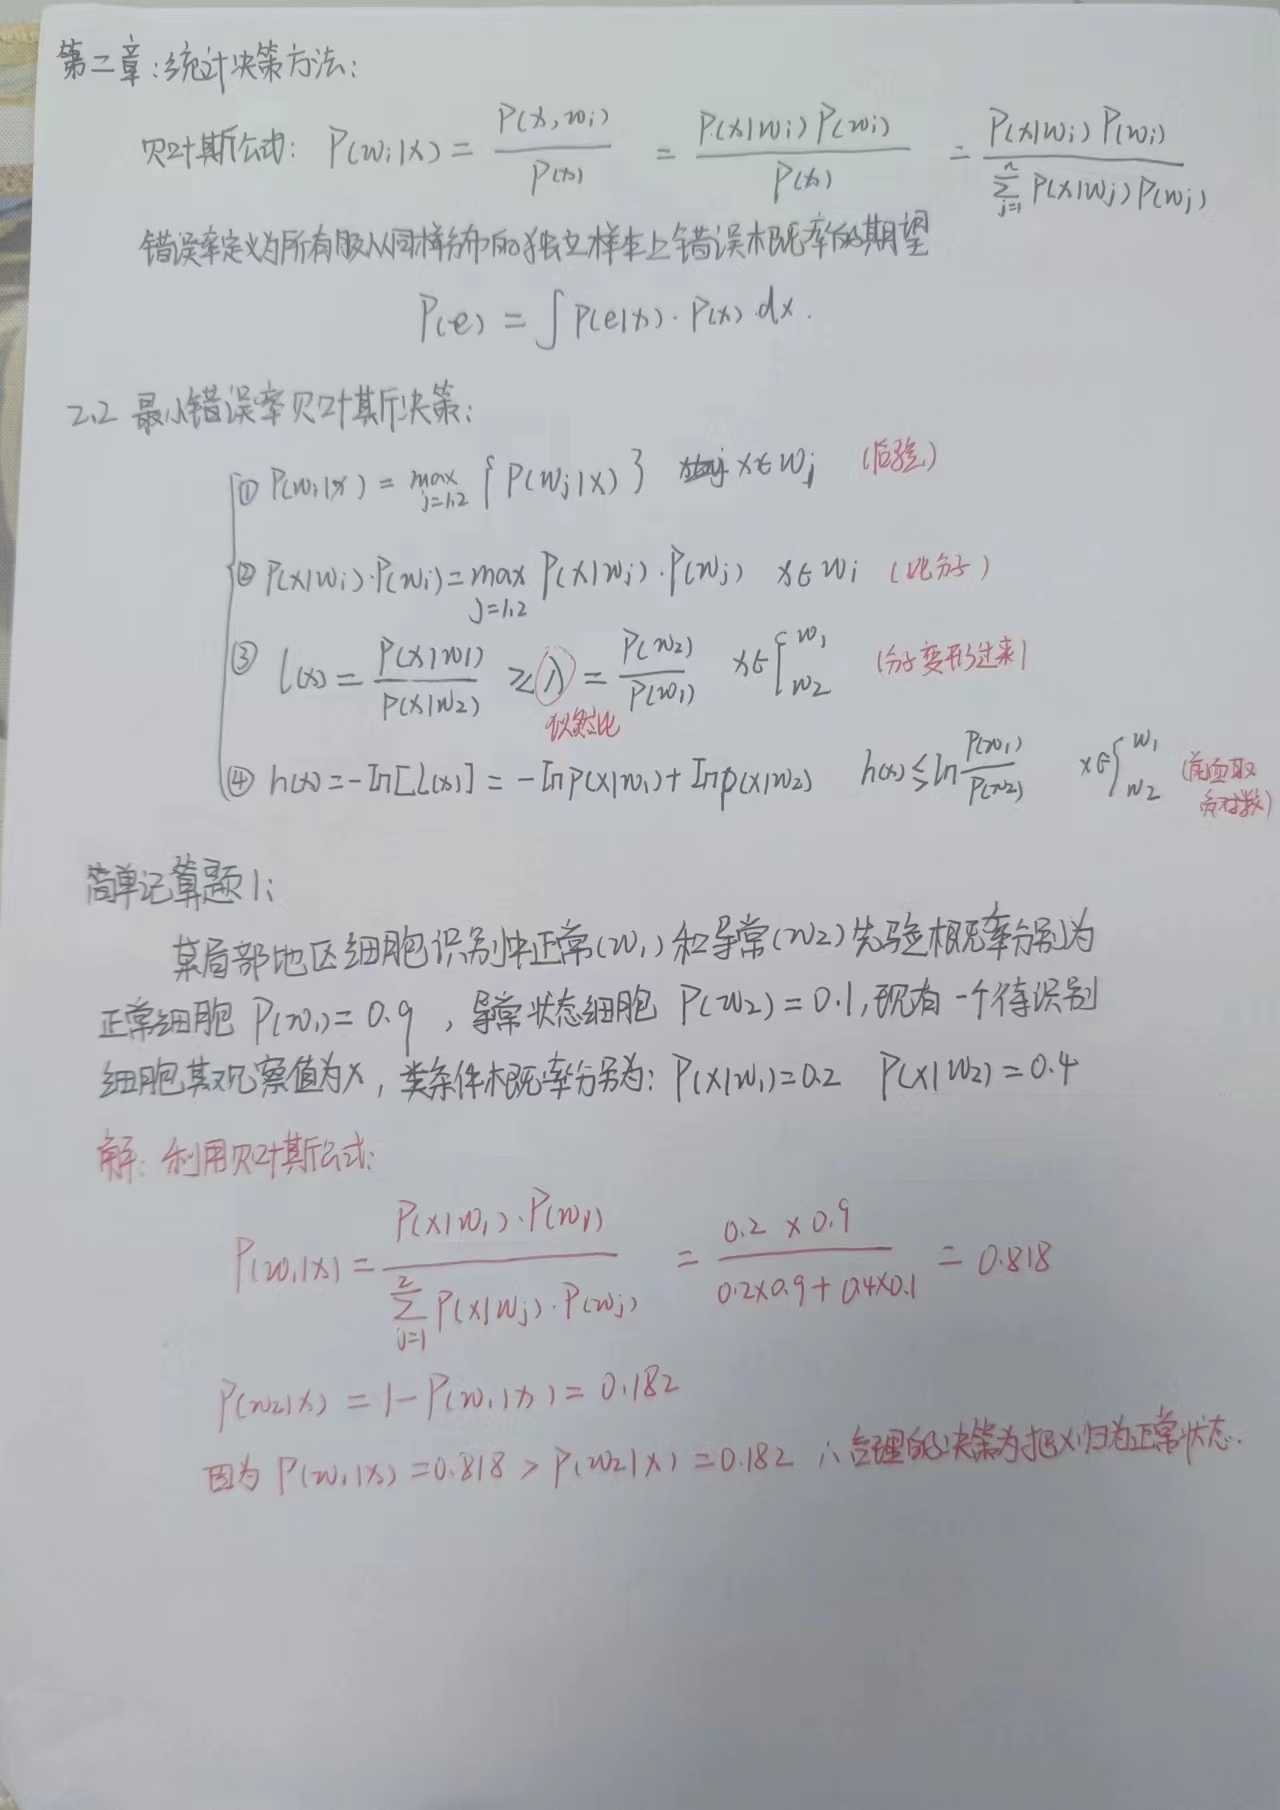 第二章:统计决策方法:
贝叶斯公式: P(wi|x) = P(x,wi) / P(x) = P(x|wi) P(wi) / P(x) = P(x|wi) P(wi) / ∑_{j=1}^{n} P(x|wj) P(wj)
错误率定义为所有服从同样分布的独立样本上错误概率的期望
P(e) = ∫ P(e|x) · P(x) dx.
2.2 最小错误率贝叶斯决策:
① P(wi|x) = max_{j=1,2} { P(wj|x) } x∈wj (后验)
② P(x|wi)·P(wi) = max_{j=1,2} P(x|wj)·P(wj) x∈wi (比分子)
③ l(x) = P(x|w1) / P(x|w2) ≥ λ = P(w2) / P(w1) x∈{ w1 w2 (分子变形过来)
似然比
④ h(x) = -ln[l(x)] = -lnp(x|w1) + lnp(x|w2) h(x) ≤ ln P(w1) / P(w2) x∈{ w1 w2 (前面取负对数)
简单记算题1:
某局部地区细胞识别中正常(w1)和异常(w2)先验概率分别为
正常细胞 P(w1) = 0.9 , 异常状态细胞 P(w2) = 0.1, 现有一个待识别
细胞其观察值为x, 类条件概率分别为: P(x|w1)=0.2 P(x|w2)=0.4
解: 利用贝叶斯公式:
P(w1|x) = P(x|w1)·P(w1) / ∑_{j=1}^{2} P(x|wj)·P(wj) = 0.2 × 0.9 / 0.2×0.9 + 0.4×0.1 = 0.818
P(w2|x) = 1 - P(w1|x) = 0.182
因为 P(w1|x) = 0.818 > P(w2|x) = 0.182 ∴ 合理的决策为把x归为正常状态.